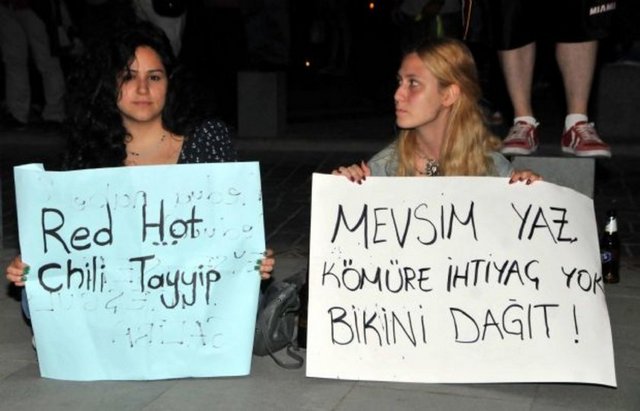 MIAMI
Red Hot
Chili Tayyip
MEVSİM YAZ
KÖMÜRE İHTİYAÇ YOK
BİKİNİ DAĞIT!